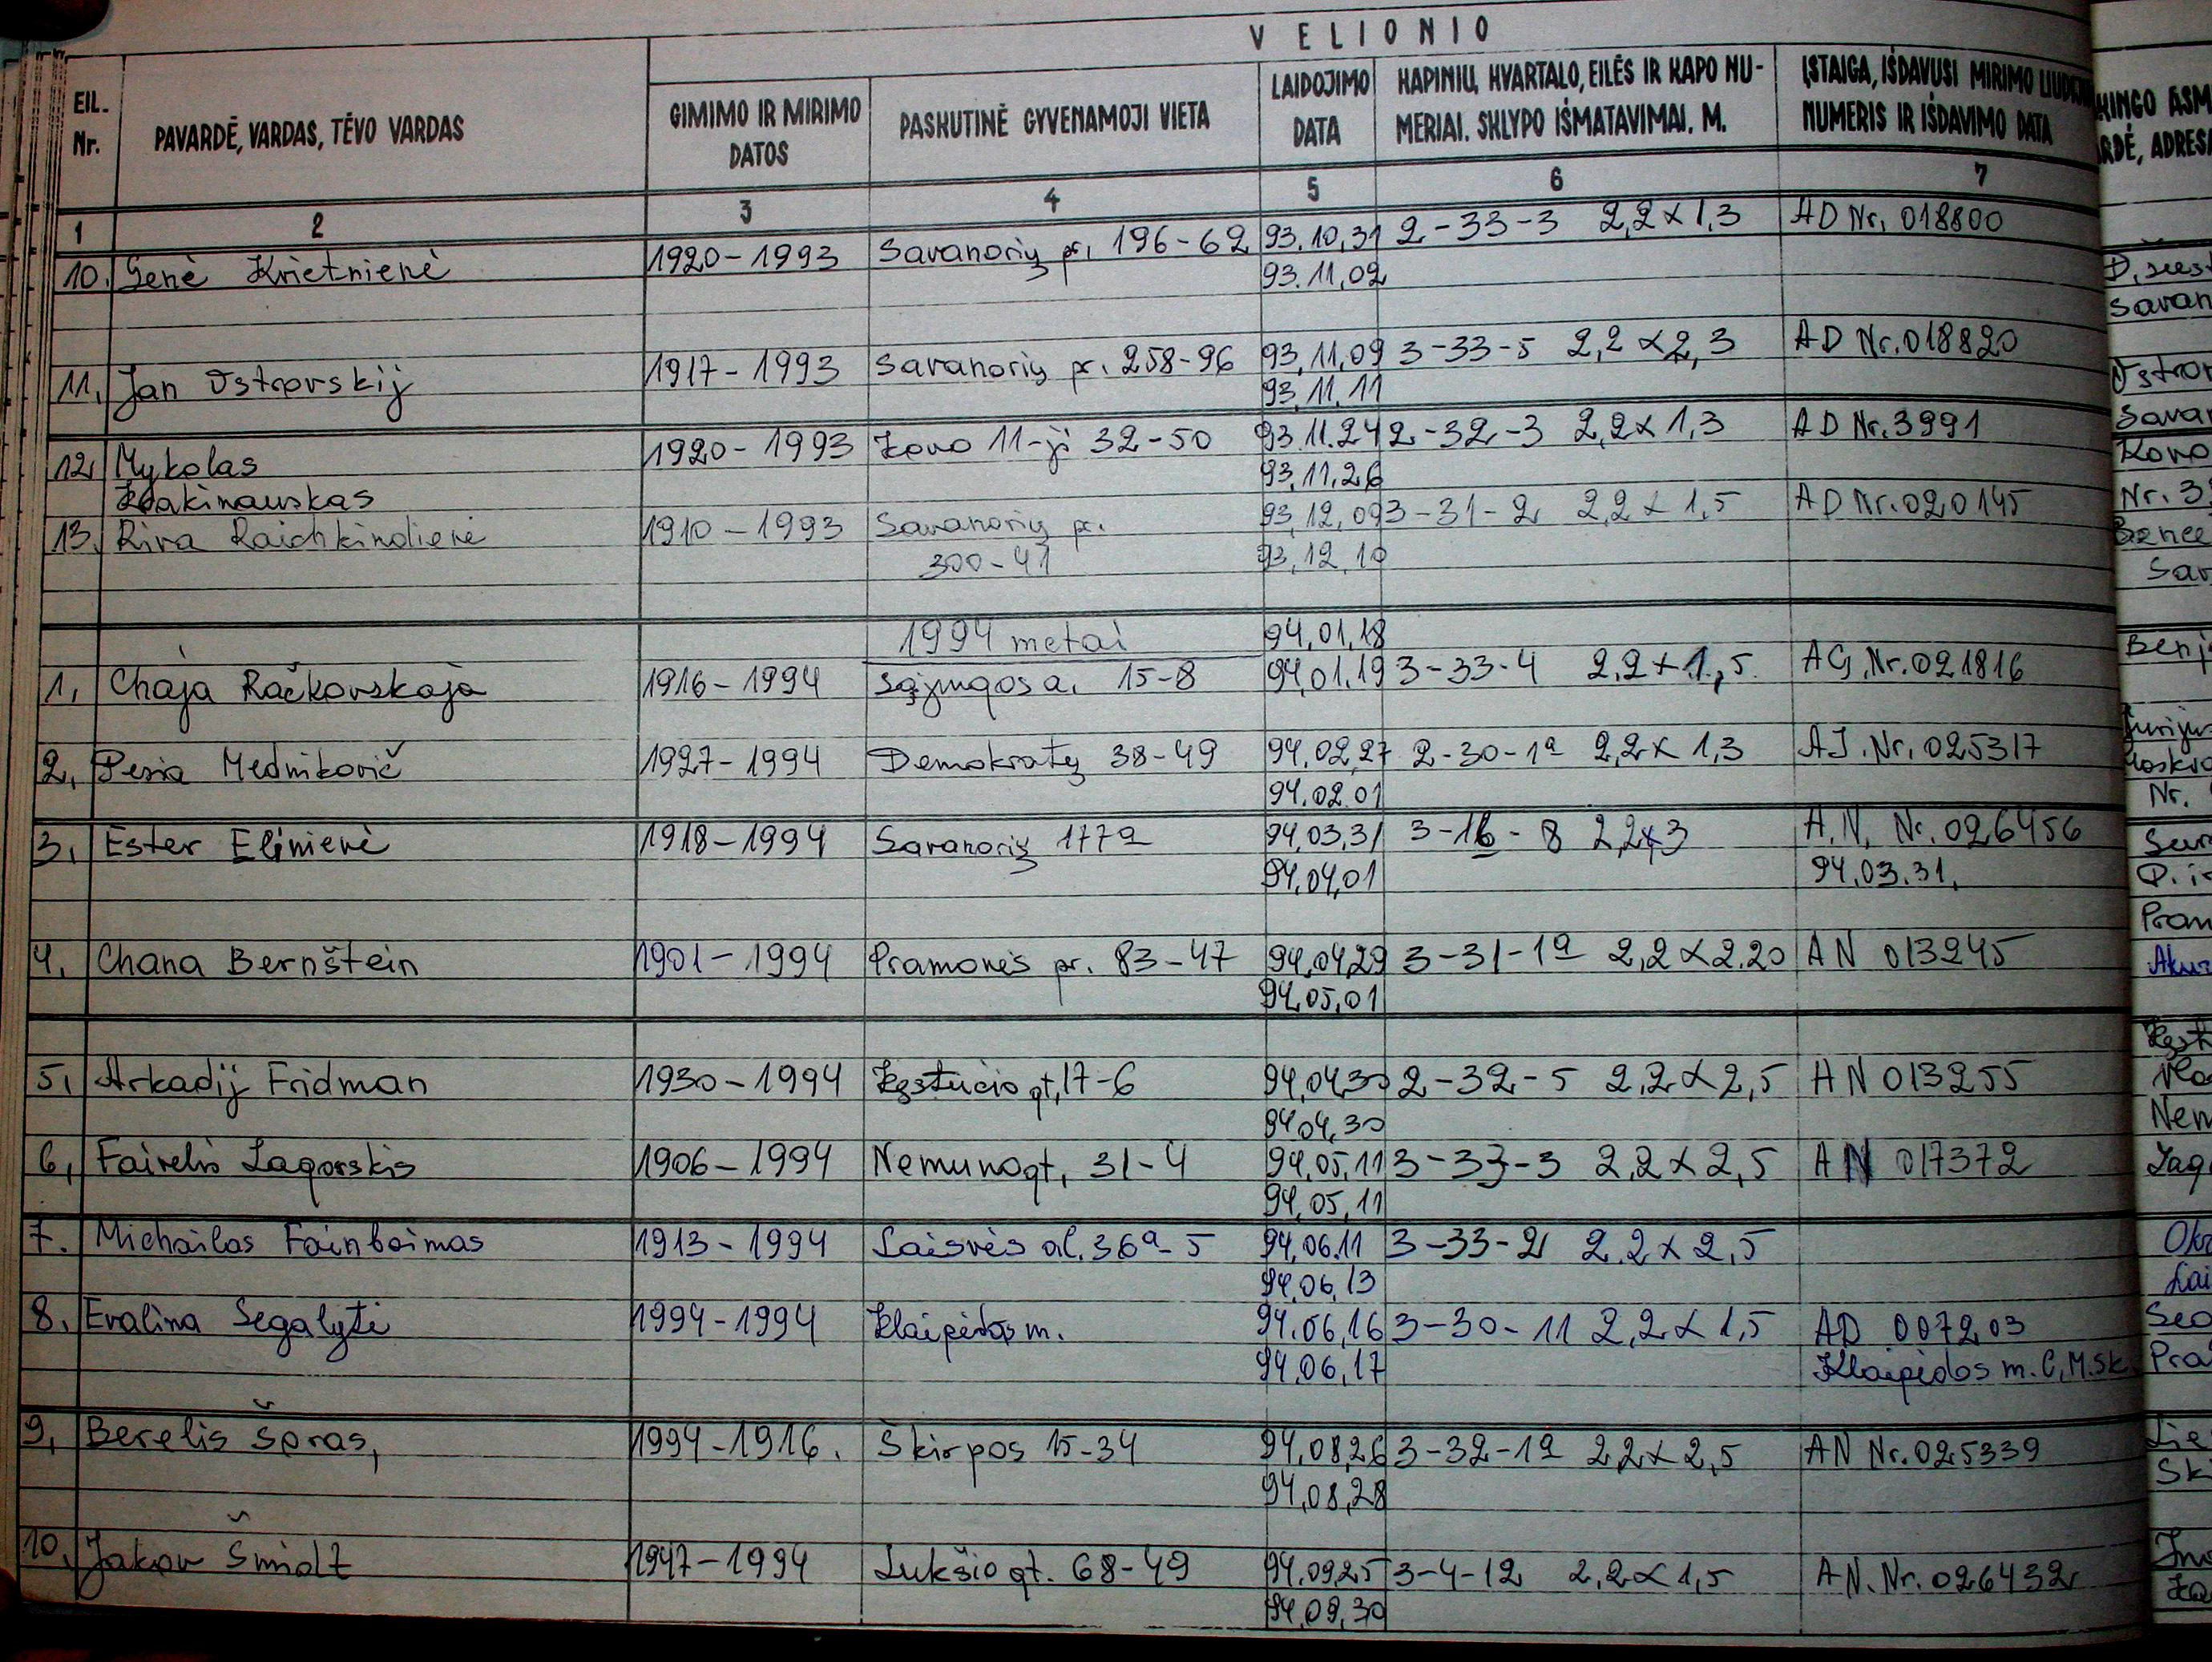 VELIONIO
EIL. Nr.
PAVARDĖ, VARDAS, TĖVO VARDAS
GIMIMO IR MIRIMO DATOS
PASKUTINĖ GYVENAMOJI VIETA
LAIDOJIMO DATA
KAPINIŲ, KVARTALO, EILĖS IR KAPO NU-
MERIAI. SKLYPO IŠMATAVIMAI. M.
ĮSTAIGA, IŠDAVUSI MIRIMO
NUMERIS IR IŠDAVIMO DATA
1 2 3 4 5 6 7
10. Genė Krietnienė 1920-1993 Savanorių pr. 196-62 93.10.31 2-33-3 2,2x1,3 AD Nr. 018800
93.11.02
11. Jan Ostrovskij 1917-1993 Savanorių pr. 258-96 93.11.09 3-33-5 2,2x2,3 AD Nr.018820
93.11.11
12. Mykolas 1920-1993 Kovo 11-ji 32-50 93.11.24 2-32-3 2,2x1,3 AD Nr.3991
93.11.26
13. Riva Raichkindienė 1910-1993 Savanorių pr. 93.12.09 3-31-2 2,2x1,5 AD Nr.020145
300-41 93.12.10
1994 metai 94.01.18
1. Chaja Račkovskaja 1916-1994 Sąjungos a. 15-8 94.01.19 3-33-4 2,2x1,5 AG.Nr.021816
2. Pesia Mednikovič 1927-1994 Demokratų 38-49 94.02.27 2-30-1a 2,2x1,3 AJ.Nr.025317
94.02.01
3. Ester Elinienė 1918-1994 Savanorių 177a 94.03.31 3-16-8 2,2x3 A.N. Nr.026456
94.04.01 94.03.31.
4. Chana Bernštein 1901-1994 Pramonės pr. 83-47 94.04.29 3-31-1a 2,2x2.20 AN 013245
94.05.01
5. Arkadij Fridman 1930-1994 Kęstučio gt.17-6 94.04.30 2-32-5 2,2x2,5 AN 013255
94.04.30
6. Faivelis Lagorskis 1906-1994 Nemuno gt. 31-4 94.05.11 3-33-3 2,2x2,5 AN 017372
94.05.11
7. Michailas Fainboimas 1913-1994 Laisvės al.36a-5 94.06.11 3-33-2 2.2x2,5
94.06.13
8. Evalina Segalytė 1994-1994 Klaipėdos m. 94.06.16 3-30-11 2,2x1,5 AD 007203
94.06.17 Klaipėdos m. C.M.Sk.
9. Berelis Šoras, 1994-1916. Škirpos 15-34 94.08.26 3-32-1a 2,2x2,5 AN Nr.025339
94.08.28
10. Jakov Šmidt 1947-1994 Lukšio gt. 68-49 94.09.25 3-4-12 2,2x1,5 AN.Nr.026432
94.09.30